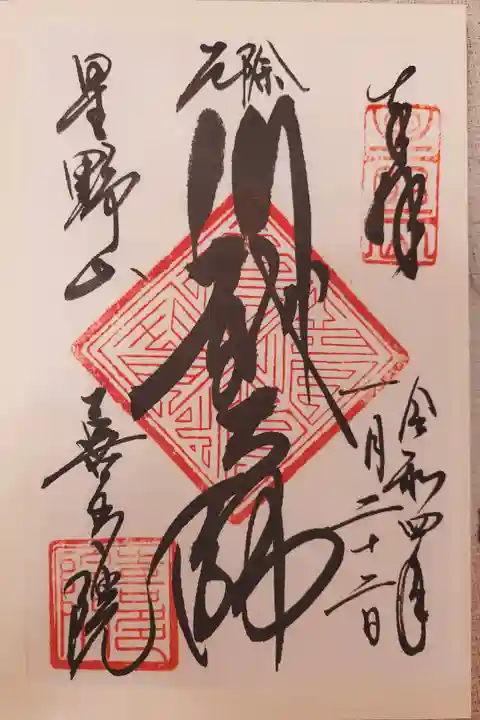 奉拝
令和四年
一月二十二日
厄除
川越大師
星野山
喜多院